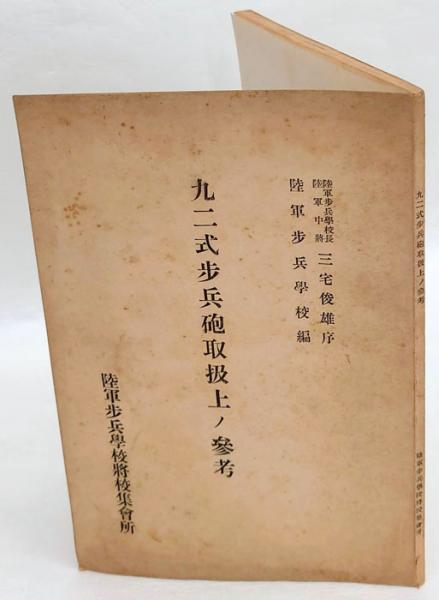 陸軍步兵學校長
陸軍中將
三宅俊雄序
陸軍步兵學校編
九二式步兵砲取扱上ノ參考
陸軍步兵學校將校集會所
九二式步兵砲取扱上ノ參考
陸軍步兵學校將校集會所